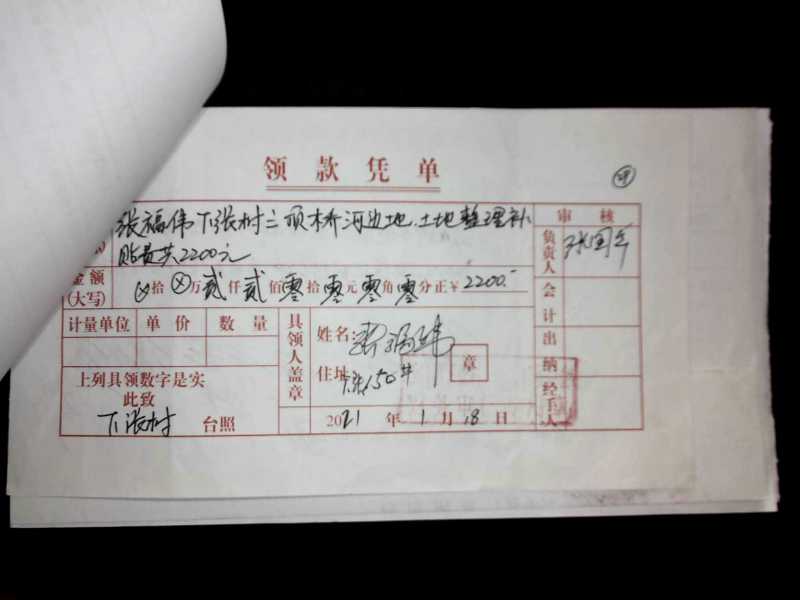 领款凭单
张福伟下张村二顷桥河边地.土地整理补
贴费共2200元
审核
负责人
金额
(大写)
⊗拾⊗万贰仟贰佰零拾零元零角零分正¥2200.-
会计
计量单位 单价 数量
具领人盖章
姓名:
章
出纳
住址
150#
上列具领数字是实
此致
下张村 台照
2021年1月18日
经手人